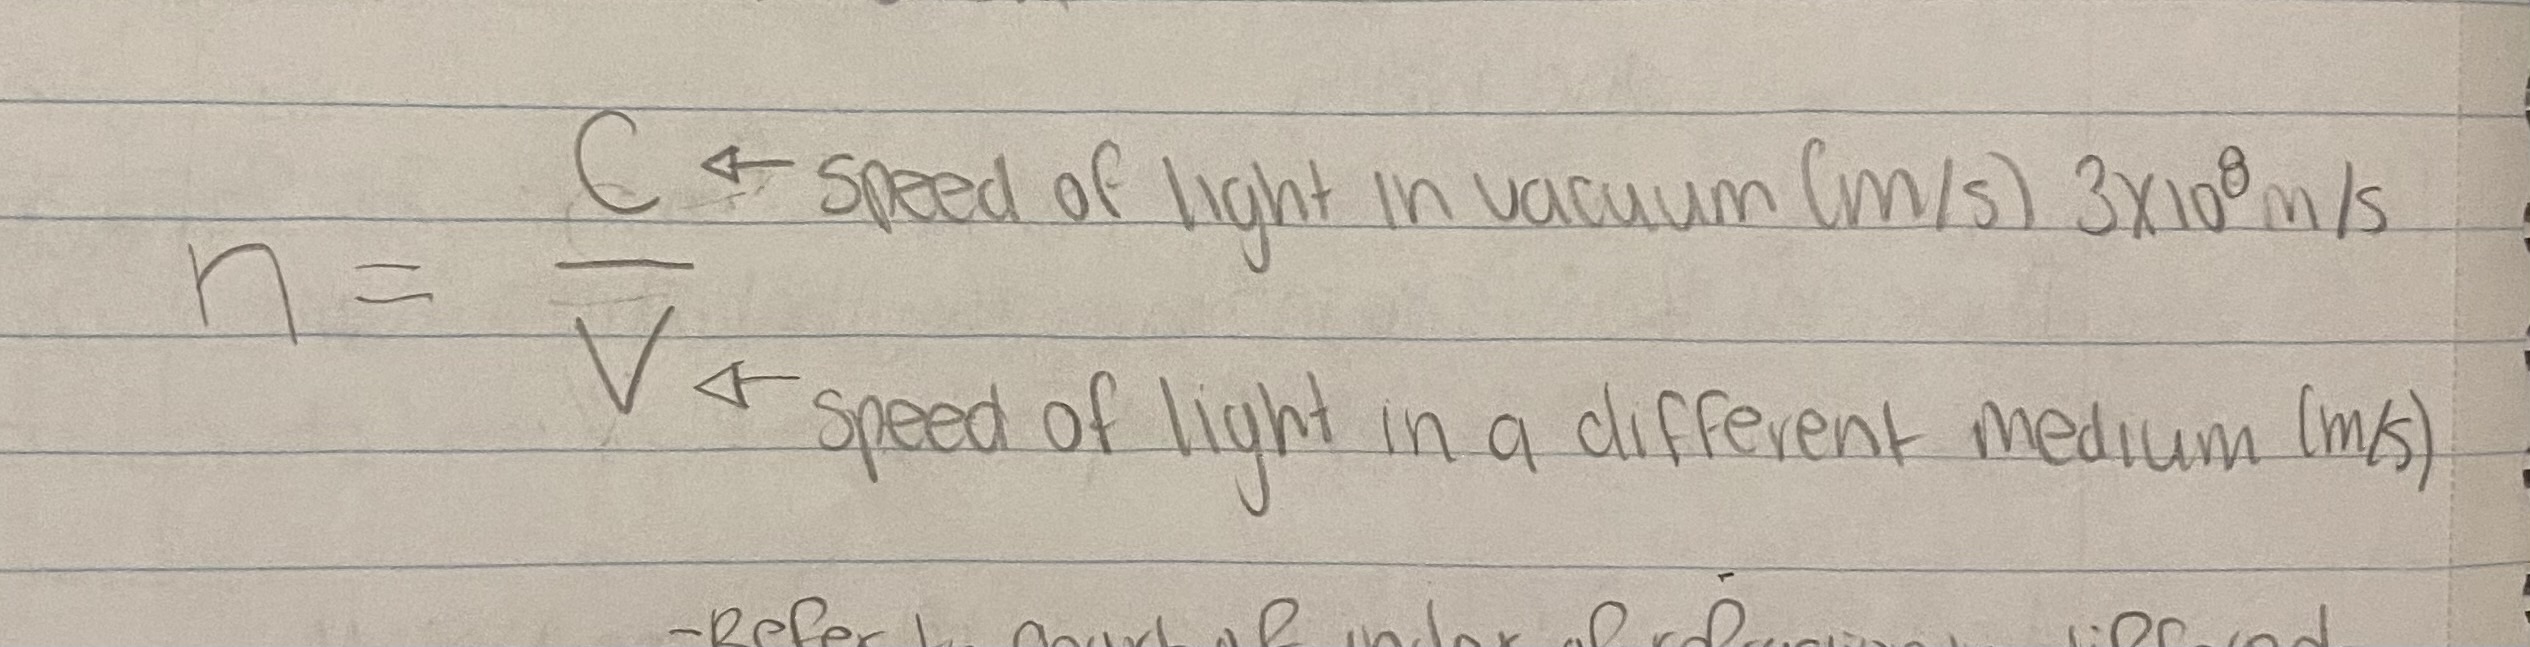 C ← speed of light in vacuum (m/s) 3x10⁸ m/s
n = —
V ← speed of light in a different medium (m/s)
-Refer of index of